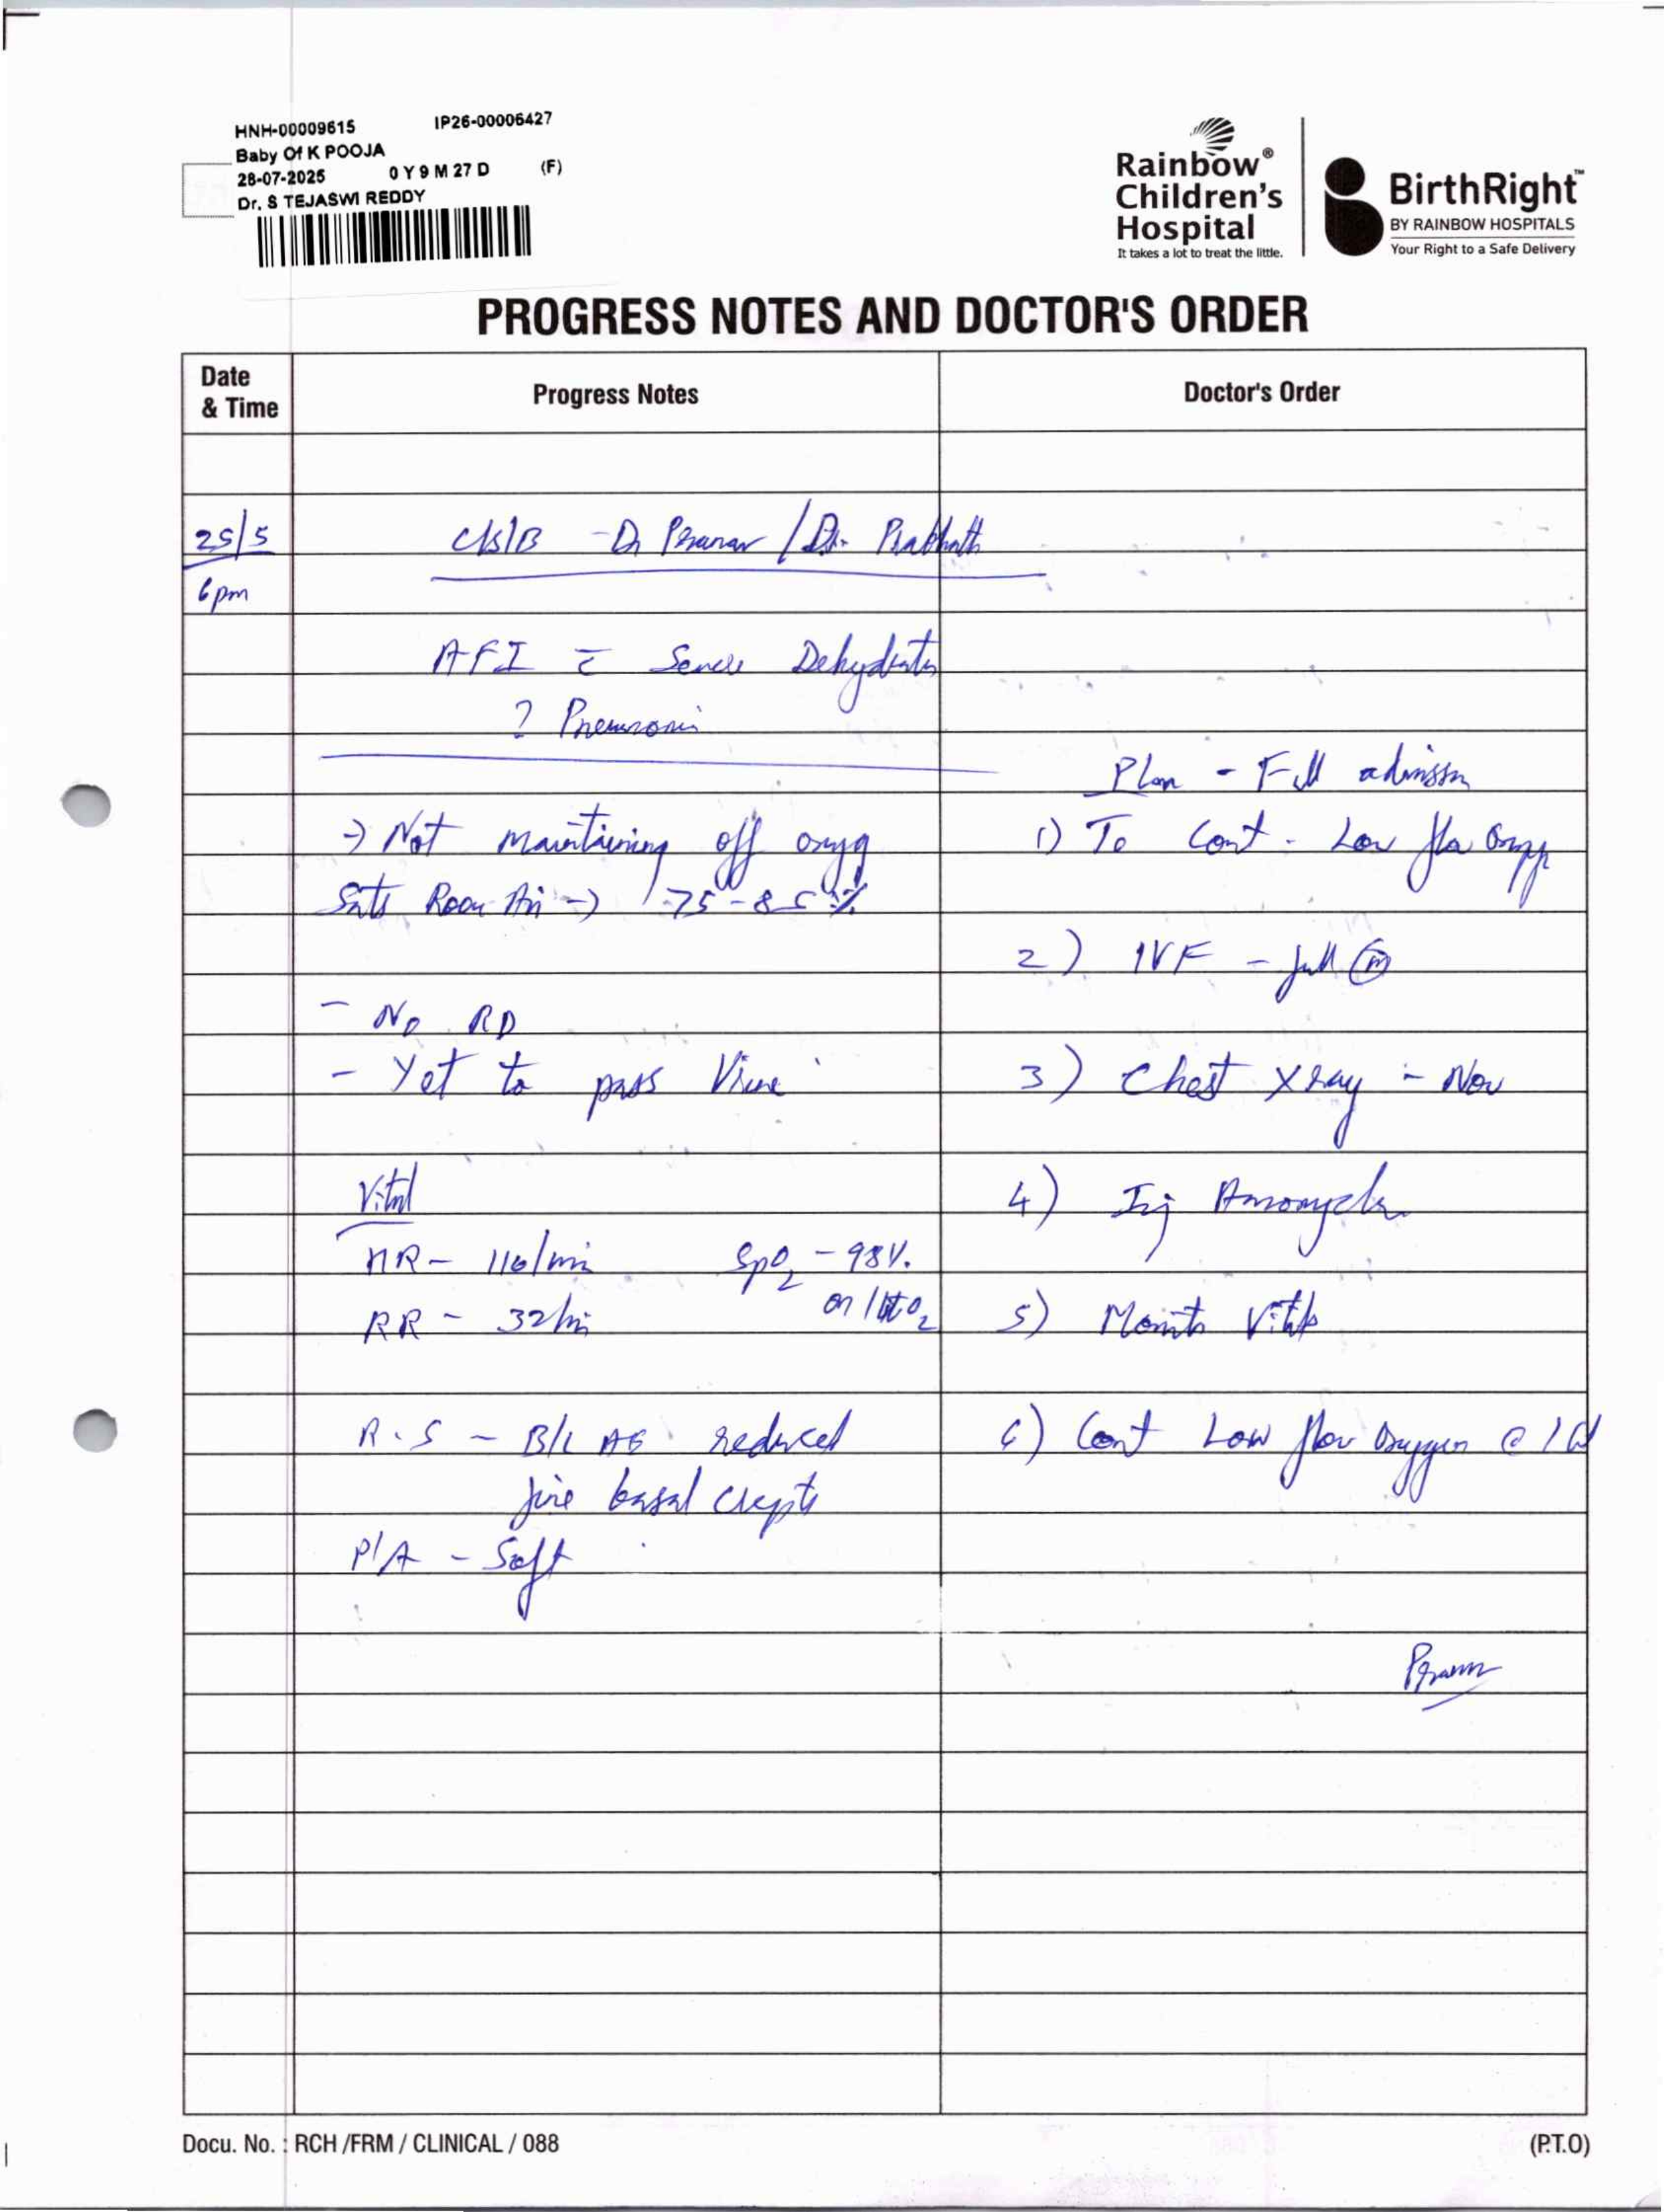 HNH-00009615 IP26-00006427
Baby Of K POOJA
28-07-2025 0 Y 9 M 27 D (F)
Dr. S TEJASWI REDDY
Rainbow® Children's Hospital
It takes a lot to treat the little.
BirthRight™
BY RAINBOW HOSPITALS
Your Right to a Safe Delivery
PROGRESS NOTES AND DOCTOR'S ORDER
Date & Time Progress Notes Doctor's Order
25/5 C/S/B - Dr Pranav / Dr. Prabhath
6pm
AFI c̄ Severe Dehydration
? Pneumonia
Plan - Full admission
→ Not maintaining off oxyg
1) To Cont - Low flow Oxyg
Sats Room Air → 75-85%
2) IVF - full (m)
- No RD
- Yet to pass Urine
3) Chest Xray - Now
Vital
4) Inj
HR - 110/min SpO2 - 98%
on 1 lit O2
RR - 32/min
5) Monitor Vitals
R.S - B/L AE reduced
6) Cont Low flow Oxygen @ 1 lit
fine basal crepts
P/A - Soft
Pranav
Docu. No. : RCH /FRM / CLINICAL / 088 (P.T.O)